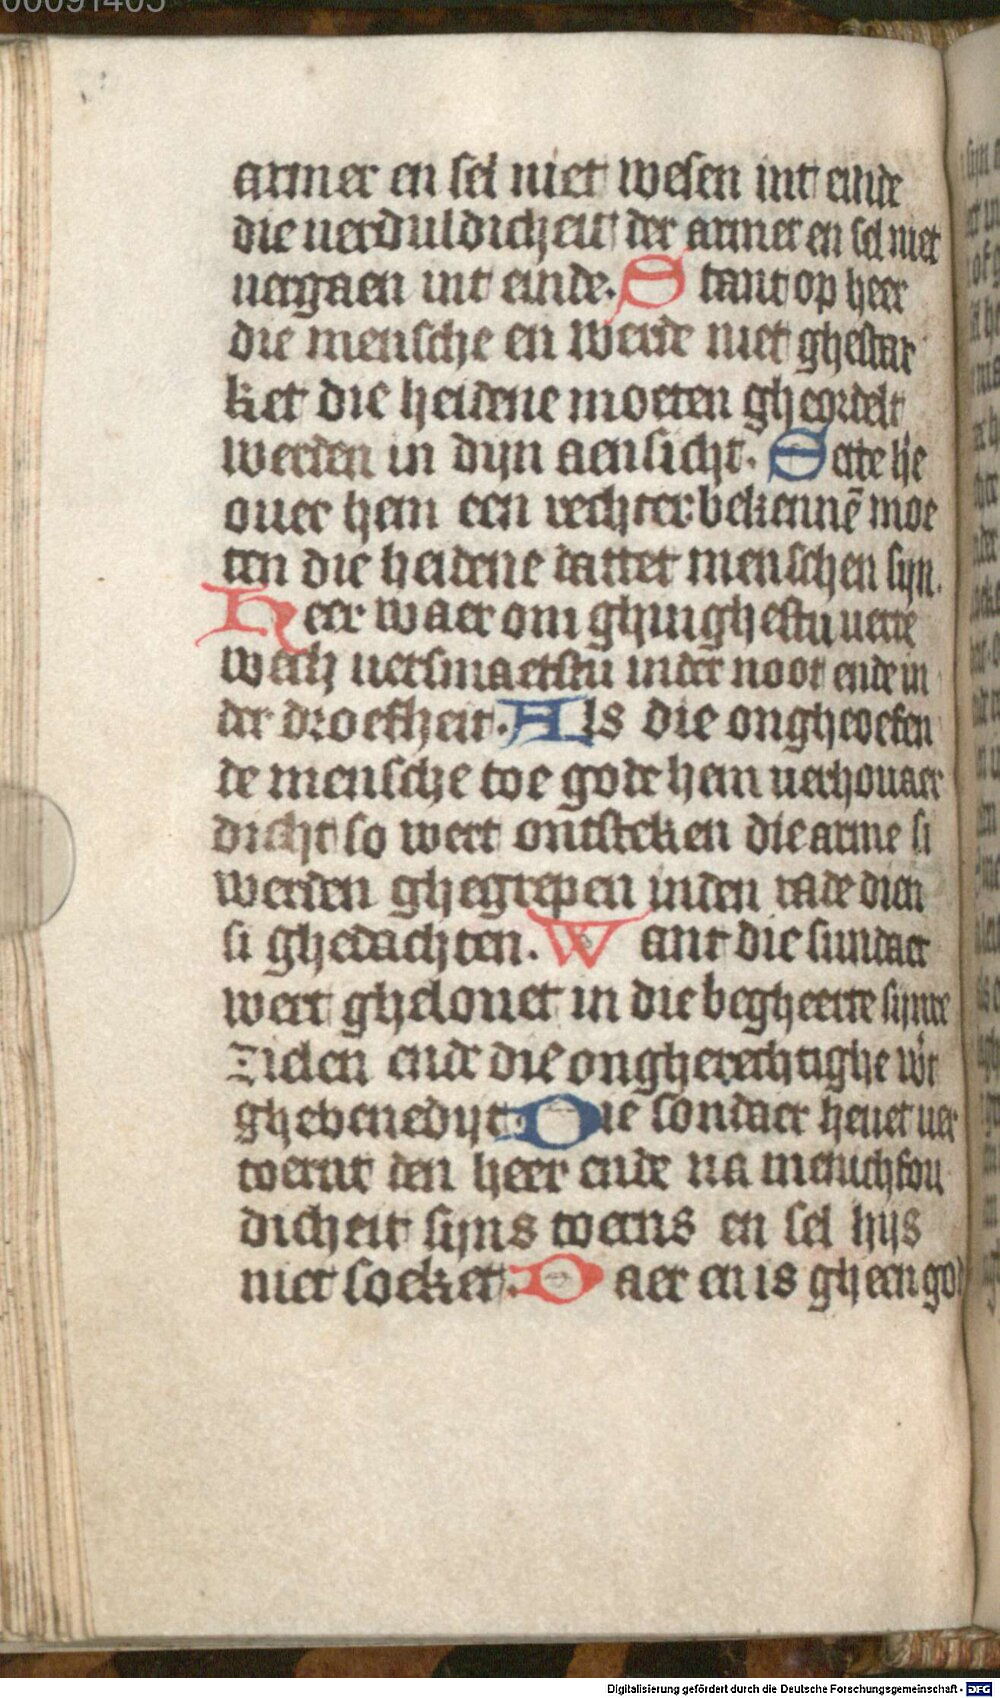 00091405
armer en sel niet wesen int einde
die uerduldicheit der armer en sel niet
uergaen int einde. Stant op heer
die mensche en werde niet ghestar
ket die heidene moeten gheordelt
werden in dijn aensicht. Sette h̄e
ouer hem een rechter bekennē moe
ten die heidene dattet menschen sijn.
Heer waer om ghinghestu uerre
wech uersmaetstu inder noot ende in
der droefheit. Als die ongheoefen
de mensche toe gode hem uerhouaer
dicht so wert ontsteken die arme si
werden ghegrepen inden rade dien
si ghedachten. Want die sundaer
wert ghelouet in die begheerte sijnre
zielen ende die ongherechtighe wt
ghebenedijt. Die sondaer heuet uer
toernt den heer ende na menichfou
dicheit sijns toerns en sel hijs
niet soeken. Daer en is gheen god
Digitalisierung gefördert durch die Deutsche Forschungsgemeinschaft - DFG